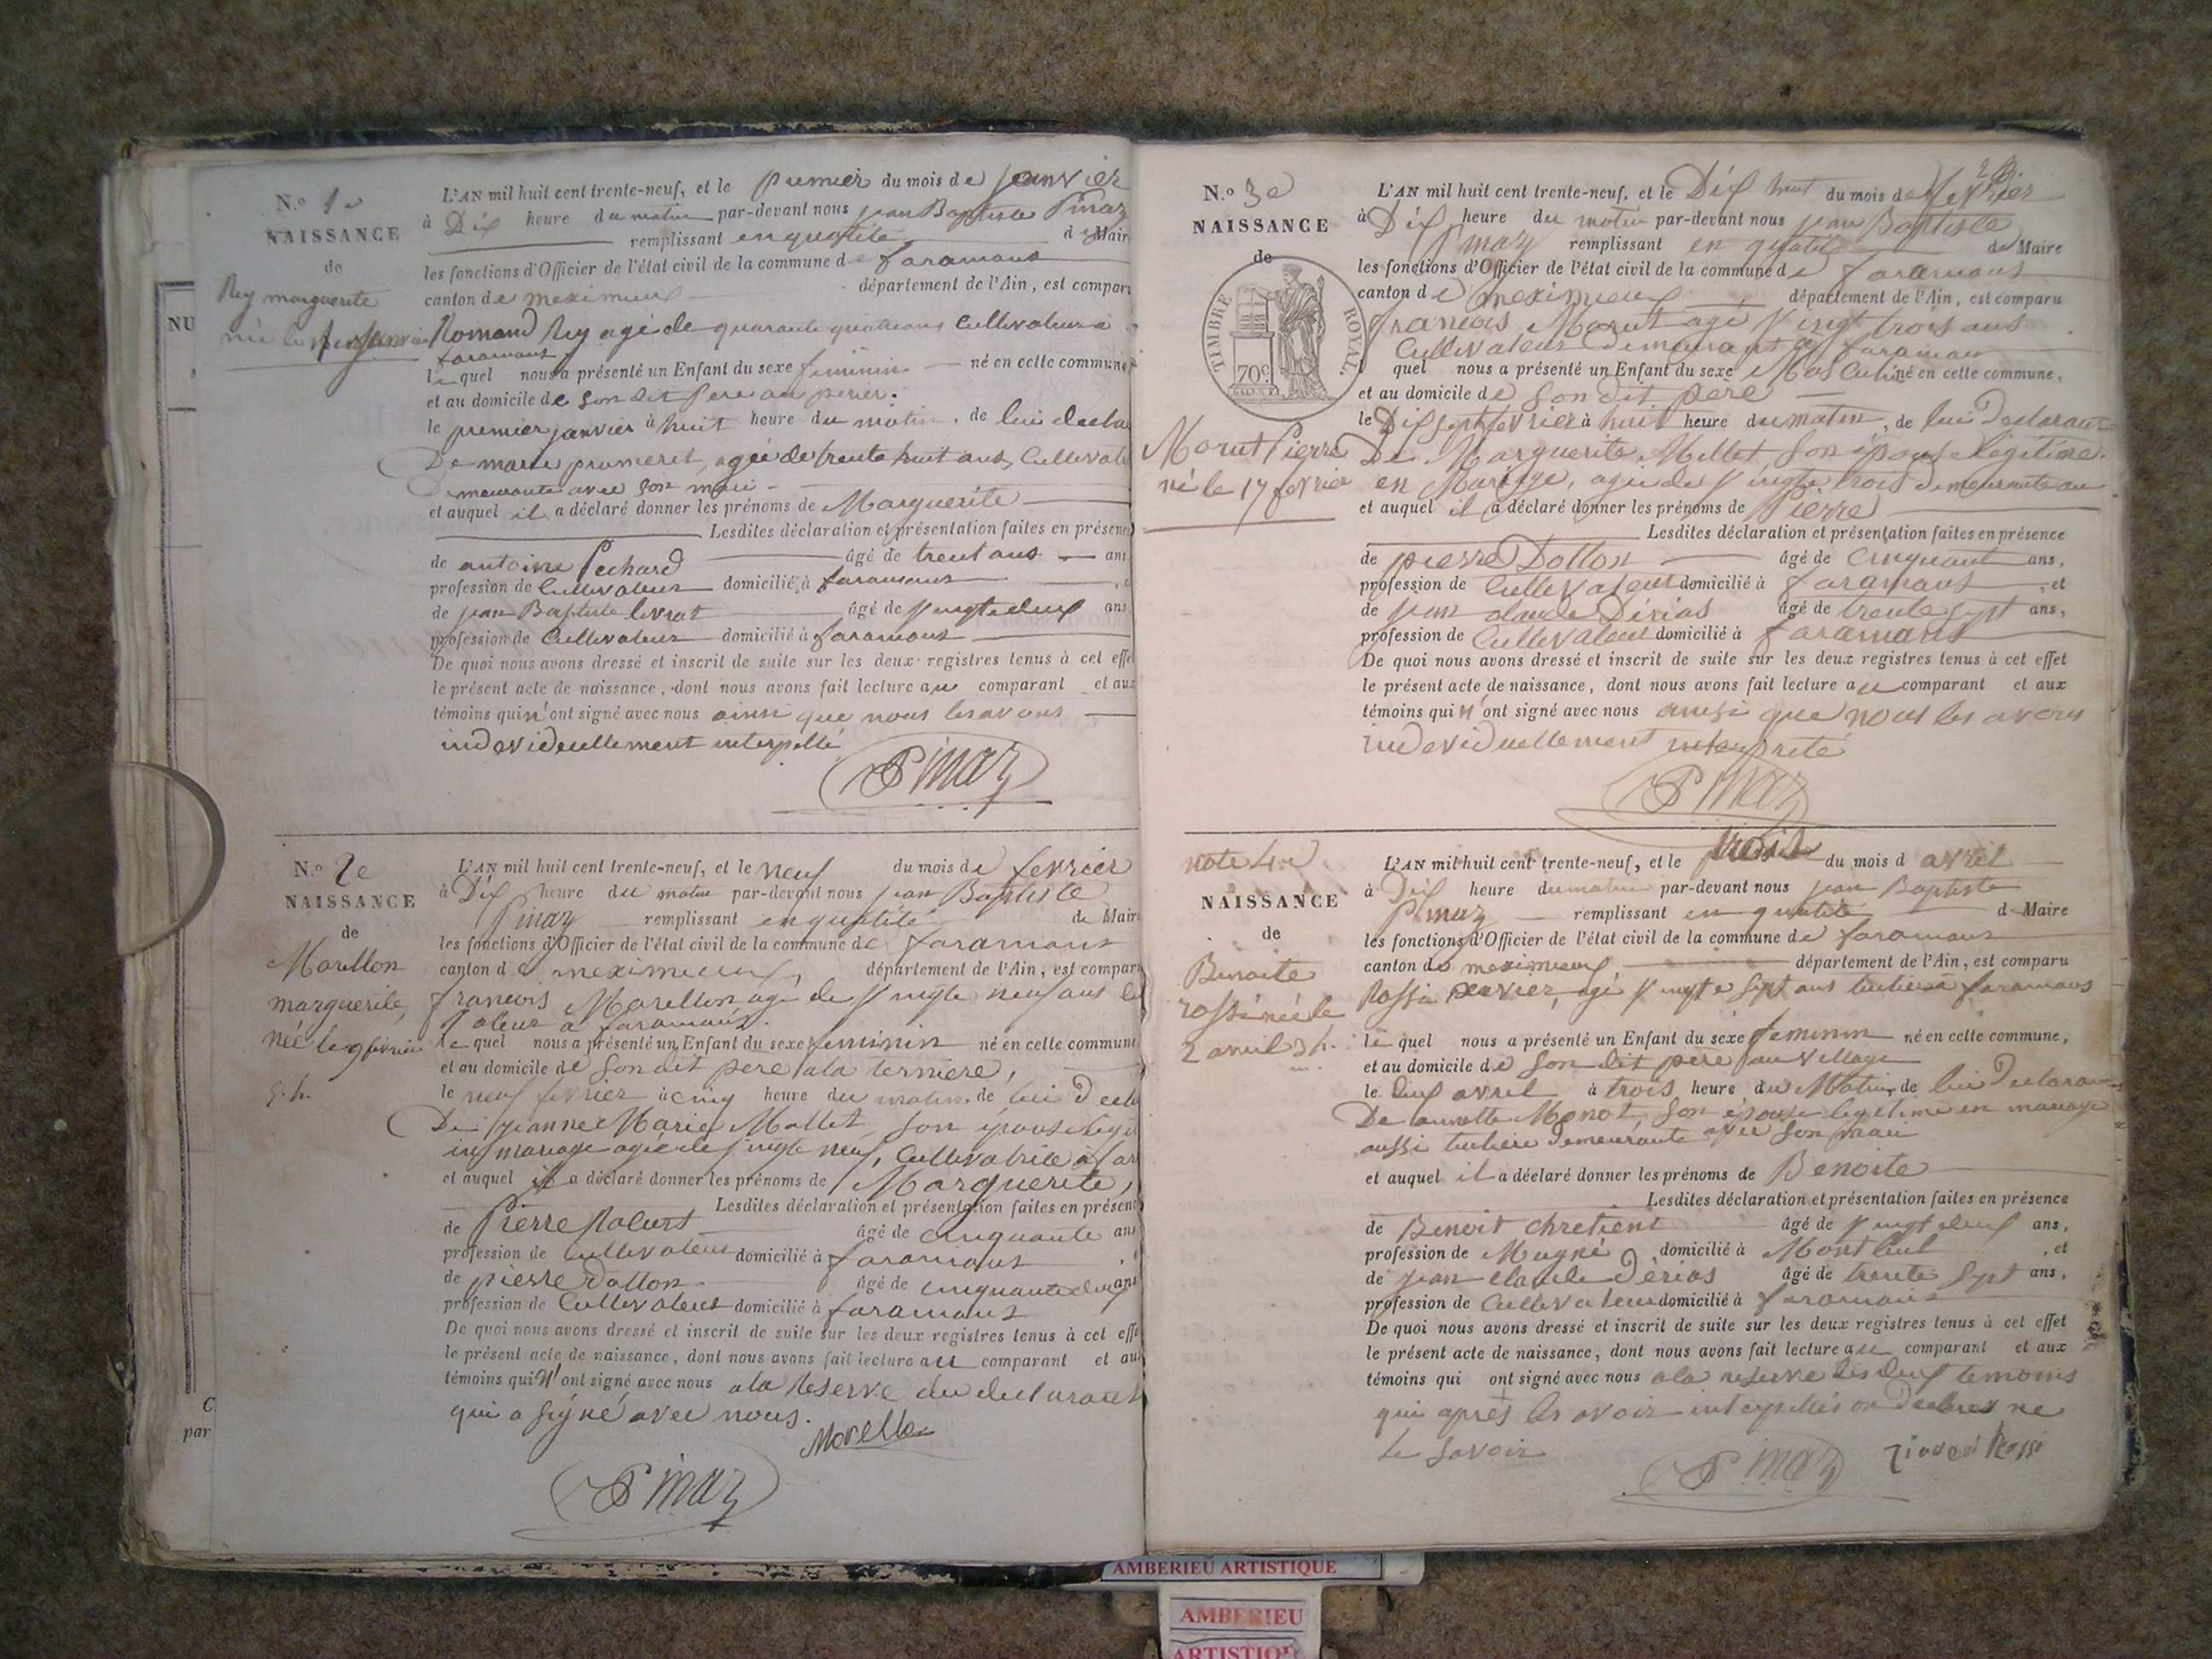 NU
C
par
N.o 1e
NAISSANCE
de
Rey marguerite
née le 1er janvier
L'AN mil huit cent trente-neuf, et le premier du mois de janvier
à Dix heure du matin par-devant nous jean Baptiste Pinaz
remplissant en qualité de Mair
les fonctions d'Officier de l'état civil de la commune de faramans
canton de meximieux département de l'Ain, est compar
Romand Rey agé de quarante quatre ans Cultivateur à
faramans
le quel nous a présenté un Enfant du sexe feminin né en cette commune
et au domicile de son dit pere au perier.
le premier janvier à huit heure du matin, de lui decla
De marie promeret, agée de trente huit ans, Cultivat
Demeurante avec son mari
et auquel il a déclaré donner les prénoms de Marguerite
Lesdites déclaration et présentation faites en présence
de antoine Pechard âgé de trent ans ans
profession de Cultivateur domicilié à faramans
de jean Baptiste livrat âgé de vingt deux ans
profession de Cultivateur domicilié à faramans
De quoi nous avons dressé et inscrit de suite sur les deux registres tenus à cet effet
le présent acte de naissance, dont nous avons fait lecture au comparant et aux
témoins qui n'ont signé avec nous ainsi que nous les avons
individuellement interpellé
Pinaz
N.o 2e
NAISSANCE
de
Morellon
marguerite,
née le 9 fevrier
5. h.
L'AN mil huit cent trente-neuf, et le neuf du mois de fevrier
à Dix heure du matin par-devant nous jean Baptiste
Pinaz remplissant en qualité de Mair
les fonctions d'Officier de l'état civil de la commune de faramans
canton de meximieux, département de l'Ain, est compar
francois Morellon agé de vingt neuf ans
vateur à faramans.
le quel nous a présenté un Enfant du sexe feminin né en cette commune
et au domicile de son dit pere a la terniere,
le neuf fevrier à cinq heure du matin, de lui decla
De jeanne Marie Mollet, son épouse legi
in mariage agée de vingt neuf, Cultivatrice a far
et auquel il a déclaré donner les prénoms de Marguerite,
Lesdites déclaration et présentation faites en présen
de Pierre âgé de cinquante ans
profession de Cultivateur domicilié à faramans
de pierre Dotton âgé de cinquante deux ans
profession de Cultivateur domicilié à faramans
De quoi nous avons dressé et inscrit de suite sur les deux registres tenus à cet effe
le présent acte de naissance, dont nous avons fait lecture au comparant et aux
témoins qui n'ont signé avec nous a la Reserve du declarant
qui a signé avec nous.
Morellon
Pinaz
N.o 3e
NAISSANCE
de
TIMBRE ROYAL
70c
Morut Pierre
né le 17 fevrier
L'AN mil huit cent trente-neuf, et le Dix huit du mois de fevrier
à Dix heure du matin par-devant nous jean Baptiste
Pinaz remplissant en qualité de Maire
les fonctions d'Officier de l'état civil de la commune de faramans
canton de meximieux département de l'Ain, est comparu
francois Morut agé vingt trois ans
Cultivateur Demeurant a faramans
quel nous a présenté un Enfant du sexe Masculin né en cette commune,
et au domicile de son dit père
le Dix sept fevrier à huit heure du matin, de lui Declarant
De Marguerite Mollet son épouse légitime
en Mariage, agée de vingt trois demeurante au
et auquel il a déclaré donner les prénoms de Pierre
Lesdites déclaration et présentation faites en présence
de pierre Dotton âgé de cinquant ans,
profession de Cultivateur domicilié à faramans, et
de jean claude Dérias âgé de trente sept ans,
profession de Cultivateur domicilié à faramans
De quoi nous avons dressé et inscrit de suite sur les deux registres tenus à cet effet
le présent acte de naissance, dont nous avons fait lecture au comparant et aux
témoins qui n'ont signé avec nous ainsi que nous les avons
individuellement
Pinaz
note 4e
NAISSANCE
de
Benoite
rossi née le
2 avril 3 h.
L'AN mil huit cent trente-neuf, et le trois du mois d avril
à Dix heure du matin par-devant nous jean Baptiste
Pinaz remplissant en qualité de Maire
les fonctions d'Officier de l'état civil de la commune de faramans
canton de meximieux département de l'Ain, est comparu
Rossi agé vingt e sept ans tuilier à faramans
le quel nous a présenté un Enfant du sexe feminin né en cette commune,
et au domicile de son dit père au village
le deux avril à trois heure du Matin, de lui Declarant
De Monot, son épouse legitime en mariage
aussi demeurante avec son mari
et auquel il a déclaré donner les prénoms de Benoite
Lesdites déclaration et présentation faites en présence
de Benoit chretient âgé de vingt deux ans,
profession de domicilié à Montluel, et
de jean claude Dérias âgé de trente sept ans,
profession de Cultivateur domicilié à faramans
De quoi nous avons dressé et inscrit de suite sur les deux registres tenus à cet effet
le présent acte de naissance, dont nous avons fait lecture au comparant et aux
témoins qui ont signé avec nous a la reserve des deux temoins
qui après les avoir interpellés on declarés ne
le savoir
Pinaz
Rossi
AMBERIEU ARTISTIQUE
AMBERIEU
ARTISTIQ